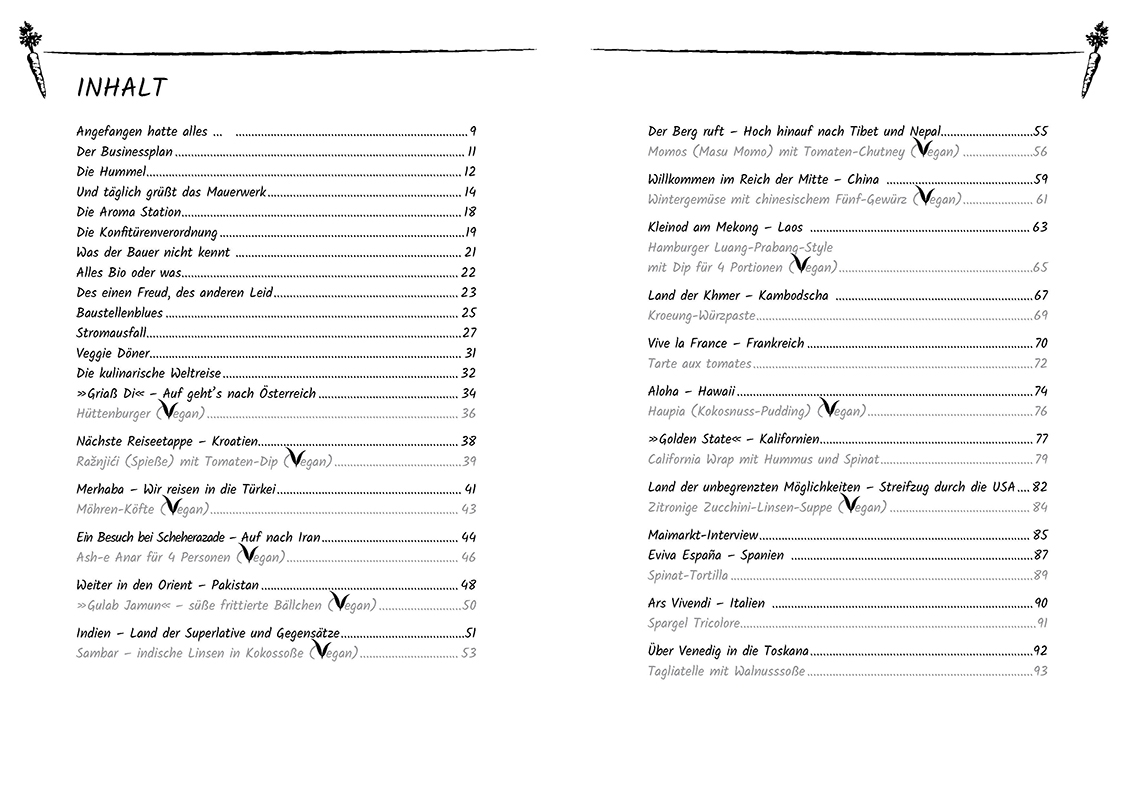 INHALT
Angefangen hatte alles ... ........ 9
Der Businessplan ........ 11
Die Hummel ........ 12
Und täglich grüßt das Mauerwerk ........ 14
Die Aroma Station ........ 18
Die Konfitürenverordnung ........ 19
Was der Bauer nicht kennt ........ 21
Alles Bio oder was ........ 22
Des einen Freud, des anderen Leid ........ 23
Baustellenblues ........ 25
Stromausfall ........ 27
Veggie Döner ........ 31
Die kulinarische Weltreise ........ 32
»Griaß Di« – Auf geht's nach Österreich ........ 34
Hüttenburger (Vegan) ........ 36
Nächste Reiseetappe – Kroatien ........ 38
Ražnjići (Spieße) mit Tomaten-Dip (Vegan) ........ 39
Merhaba – Wir reisen in die Türkei ........ 41
Möhren-Köfte (Vegan) ........ 43
Ein Besuch bei Scheherazade – Auf nach Iran ........ 44
Ash-e Anar für 4 Personen (Vegan) ........ 46
Weiter in den Orient – Pakistan ........ 48
»Gulab Jamun« – süße frittierte Bällchen (Vegan) ........ 50
Indien – Land der Superlative und Gegensätze ........ 51
Sambar – indische Linsen in Kokossoße (Vegan) ........ 53
Der Berg ruft – Hoch hinauf nach Tibet und Nepal ........ 55
Momos (Masu Momo) mit Tomaten-Chutney (Vegan) ........ 56
Willkommen im Reich der Mitte – China ........ 59
Wintergemüse mit chinesischem Fünf-Gewürz (Vegan) ........ 61
Kleinod am Mekong – Laos ........ 63
Hamburger Luang-Prabang-Style
mit Dip für 4 Portionen (Vegan) ........ 65
Land der Khmer – Kambodscha ........ 67
Kroeung-Würzpaste ........ 69
Vive la France – Frankreich ........ 70
Tarte aux tomates ........ 72
Aloha – Hawaii ........ 74
Haupia (Kokosnuss-Pudding) (Vegan) ........ 76
»Golden State« – Kalifornien ........ 77
California Wrap mit Hummus und Spinat ........ 79
Land der unbegrenzten Möglichkeiten – Streifzug durch die USA .... 82
Zitronige Zucchini-Linsen-Suppe (Vegan) ........ 84
Maimarkt-Interview ........ 85
Eviva España – Spanien ........ 87
Spinat-Tortilla ........ 89
Ars Vivendi – Italien ........ 90
Spargel Tricolore ........ 91
Über Venedig in die Toskana ........ 92
Tagliatelle mit Walnusssoße ........ 93